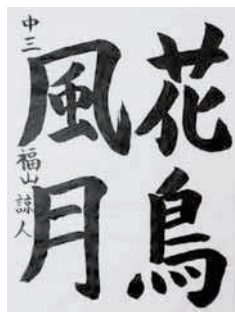 花鳥
風月
中三
福山諒人